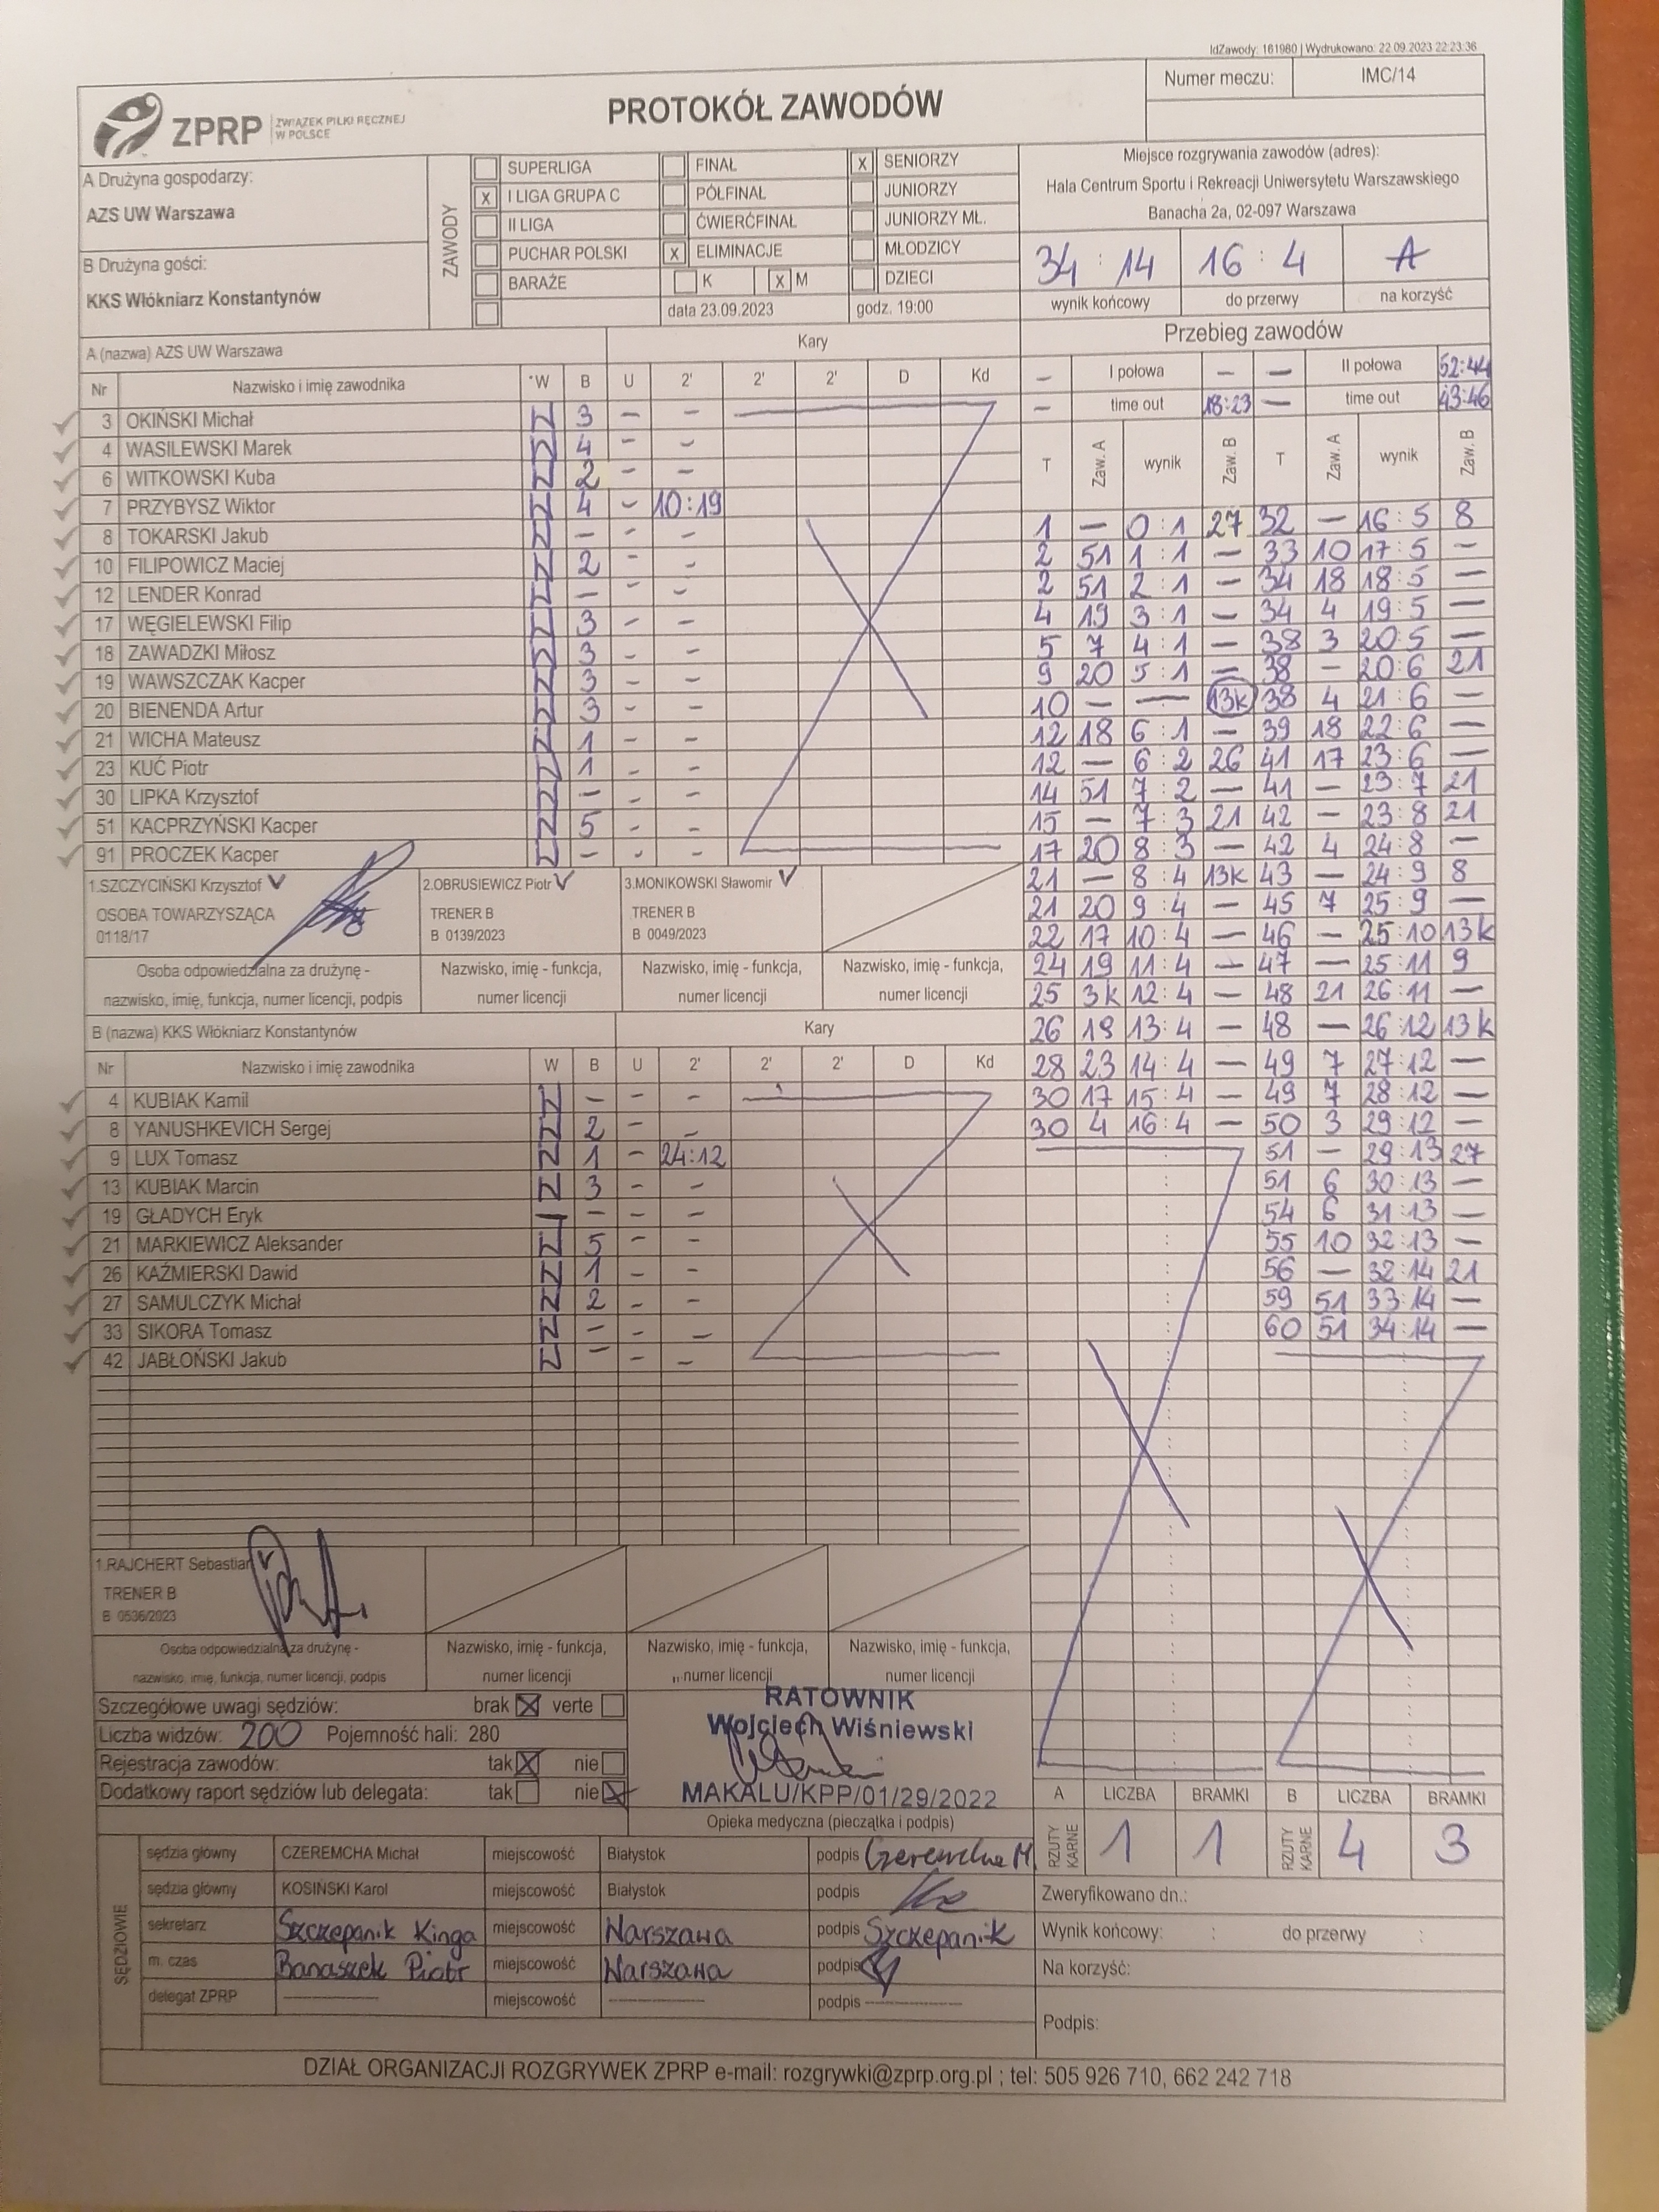 IdZawody: 161980 | Wydrukowano: 22.09.2023 22:23:36
ZPRP ZWIĄZEK PIŁKI RĘCZNEJ W POLSCE
PROTOKÓŁ ZAWODÓW
Numer meczu: IMC/14
A Drużyna gospodarzy:
AZS UW Warszawa
B Drużyna gości:
KKS Włókniarz Konstantynów
ZAWODY
SUPERLIGA FINAŁ X SENIORZY
X I LIGA GRUPA C PÓŁFINAŁ JUNIORZY
II LIGA ĆWIERĆFINAŁ JUNIORZY MŁ.
PUCHAR POLSKI X ELIMINACJE MŁODZICY
BARAŻE K X M DZIECI
data 23.09.2023 godz. 19:00
Miejsce rozgrywania zawodów (adres):
Hala Centrum Sportu i Rekreacji Uniwersytetu Warszawskiego
Banacha 2a, 02-097 Warszawa
34 : 14 16 : 4 A
wynik końcowy do przerwy na korzyść
A (nazwa) AZS UW Warszawa Kary
Nr Nazwisko i imię zawodnika *W B U 2' 2' 2' D Kd
3 OKIŃSKI Michał 3 - -
4 WASILEWSKI Marek 4 - -
6 WITKOWSKI Kuba 2 - -
7 PRZYBYSZ Wiktor 4 - 10:19
8 TOKARSKI Jakub - - -
10 FILIPOWICZ Maciej 2 - -
12 LENDER Konrad - - -
17 WĘGIELEWSKI Filip 3 - -
18 ZAWADZKI Miłosz 3 - -
19 WAWSZCZAK Kacper 3 - -
20 BIENENDA Artur 3 - -
21 WICHA Mateusz 1 - -
23 KUĆ Piotr 1 - -
30 LIPKA Krzysztof - - -
51 KACPRZYŃSKI Kacper 5 - -
91 PROCZEK Kacper - - -
1.SZCZYCIŃSKI Krzysztof 2.OBRUSIEWICZ Piotr 3.MONIKOWSKI Sławomir
OSOBA TOWARZYSZĄCA TRENER B TRENER B
0118/17 B 0139/2023 B 0049/2023
Osoba odpowiedzialna za drużynę - Nazwisko, imię - funkcja, Nazwisko, imię - funkcja, Nazwisko, imię - funkcja,
nazwisko, imię, funkcja, numer licencji, podpis numer licencji numer licencji numer licencji
B (nazwa) KKS Włókniarz Konstantynów Kary
Nr Nazwisko i imię zawodnika W B U 2' 2' 2' D Kd
4 KUBIAK Kamil - - -
8 YANUSHKEVICH Sergej 2 - -
9 LUX Tomasz 1 - 24:12
13 KUBIAK Marcin 3 - -
19 GŁADYCH Eryk - - -
21 MARKIEWICZ Aleksander 5 - -
26 KAŹMIERSKI Dawid 1 - -
27 SAMULCZYK Michał 2 - -
33 SIKORA Tomasz - - -
42 JABŁOŃSKI Jakub - - -
1.RAJCHERT Sebastian
TRENER B
B 0536/2023
Osoba odpowiedzialna za drużynę - Nazwisko, imię - funkcja, Nazwisko, imię - funkcja, Nazwisko, imię - funkcja,
nazwisko, imię, funkcja, numer licencji, podpis numer licencji numer licencji numer licencji
Przebieg zawodów
- I połowa - - II połowa 52:44
- time out 18:23 - time out 43:46
T Zaw. A wynik Zaw. B T Zaw. A wynik Zaw. B
1 - 0:1 27 32 - 16:5 8
2 51 1:1 - 33 10 17:5 -
2 51 2:1 - 34 18 18:5 -
4 19 3:1 - 34 4 19:5 -
5 7 4:1 - 38 3 20:5 -
9 20 5:1 - 38 - 20:6 21
10 - - 13k 38 4 21:6 -
12 18 6:1 - 39 18 22:6 -
12 - 6:2 26 41 17 23:6 -
14 51 7:2 - 41 - 23:7 21
15 - 7:3 21 42 - 23:8 21
17 20 8:3 - 42 4 24:8 -
21 - 8:4 13k 43 - 24:9 8
21 20 9:4 - 45 7 25:9 -
22 17 10:4 - 46 - 25:10 13k
24 19 11:4 - 47 - 25:11 9
25 3k 12:4 - 48 21 26:11 -
26 19 13:4 - 48 - 26:12 13k
28 23 14:4 - 49 7 27:12 -
30 17 15:4 - 49 7 28:12 -
30 4 16:4 - 50 3 29:12 -
51 - 29:13 27
51 6 30:13 -
54 6 31:13 -
55 10 32:13 -
56 - 32:14 21
59 51 33:14 -
60 51 34:14 -
Szczegółowe uwagi sędziów: brak X verte
Liczba widzów: 200 Pojemność hali: 280
Rejestracja zawodów: tak X nie
Dodatkowy raport sędziów lub delegata: tak nie X
RATOWNIK
Wojciech Wiśniewski
MAKALU/KPP/01/29/2022
Opieka medyczna (pieczątka i podpis)
A LICZBA BRAMKI B LICZBA BRAMKI
RZUTY KARNE 1 1 RZUTY KARNE 4 3
SĘDZIOWIE
sędzia główny CZEREMCHA Michał miejscowość Białystok podpis Czeremcha M.
sędzia główny KOSIŃSKI Karol miejscowość Białystok podpis
sekretarz Szczepanik Kinga miejscowość Warszawa podpis Szczepanik
m. czas Banaszek Piotr miejscowość Warszawa podpis
delegat ZPRP miejscowość podpis
Zweryfikowano dn.:
Wynik końcowy: : do przerwy :
Na korzyść:
Podpis:
DZIAŁ ORGANIZACJI ROZGRYWEK ZPRP e-mail: rozgrywki@zprp.org.pl ; tel: 505 926 710, 662 242 718